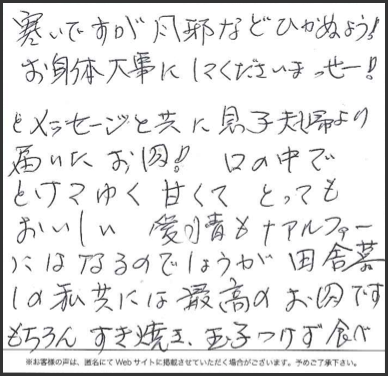 寒いですが風邪などひかぬよう!
お身体大事にしてくださいまっせー!
とメッセージと共に息子夫婦より
届いたお肉!! 口の中で
とけてまゆく 甘くて とっても
おいしい 愛情も+アルファー
にはなるのでしょうが 田舎暮
しの私共には最高のお肉です
もちろん すき焼き、玉子つけず食べ
※お客様の声は、匿名にてWebサイトに掲載させていただく場合がございます。予めご了承下さい。